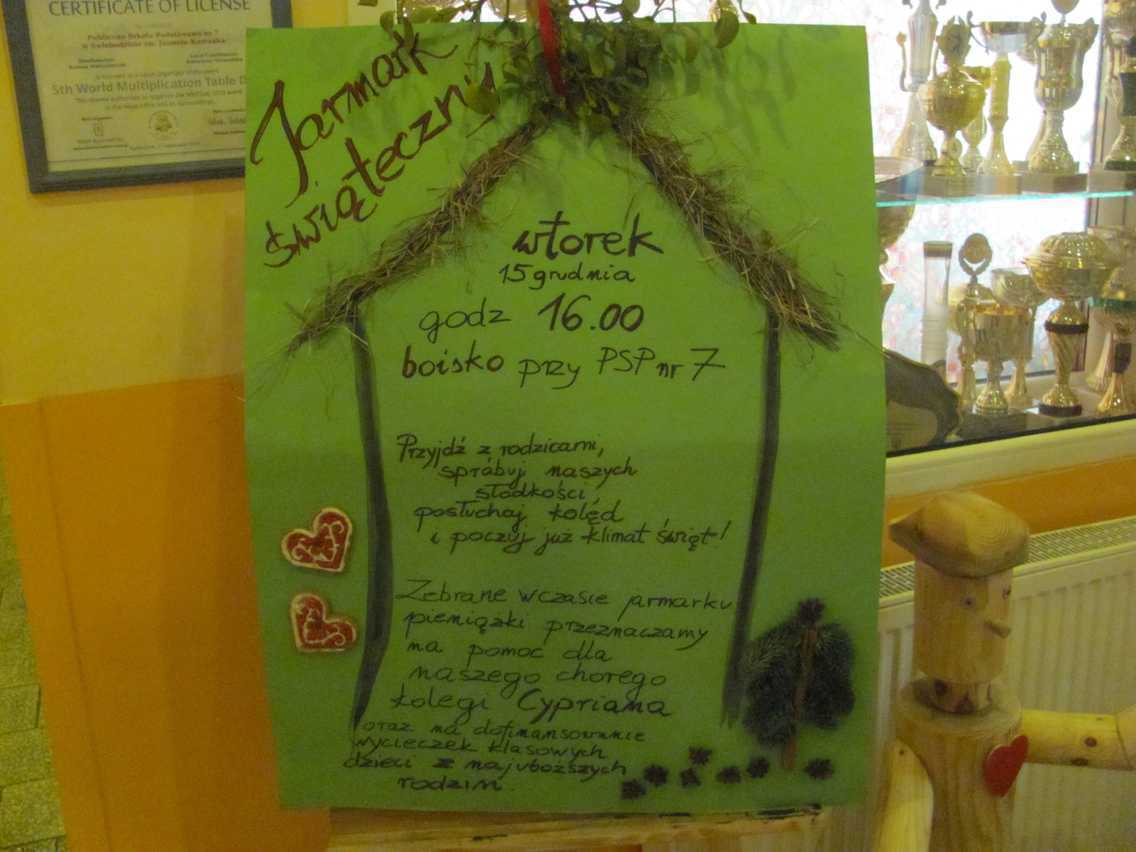 CERTIFICATE OF LICENSE
Publiczna Szkoła Podstawowa nr 7
5th World Multiplication Table D
Jarmark
świąteczny
wtorek
15 grudnia
godz 16.00
boisko przy PSP nr 7
Przyjdź z rodzicami,
spróbuj naszych
słodkości
posłuchaj kolęd
i poczuj już klimat świąt!
Zebrane w czasie jarmarku
pieniążki przeznaczamy
na pomoc dla
naszego chorego
kolegi Cypriana
oraz na dofinansowanie
wycieczek klasowych
dzieci z najuboższych
rodzin.